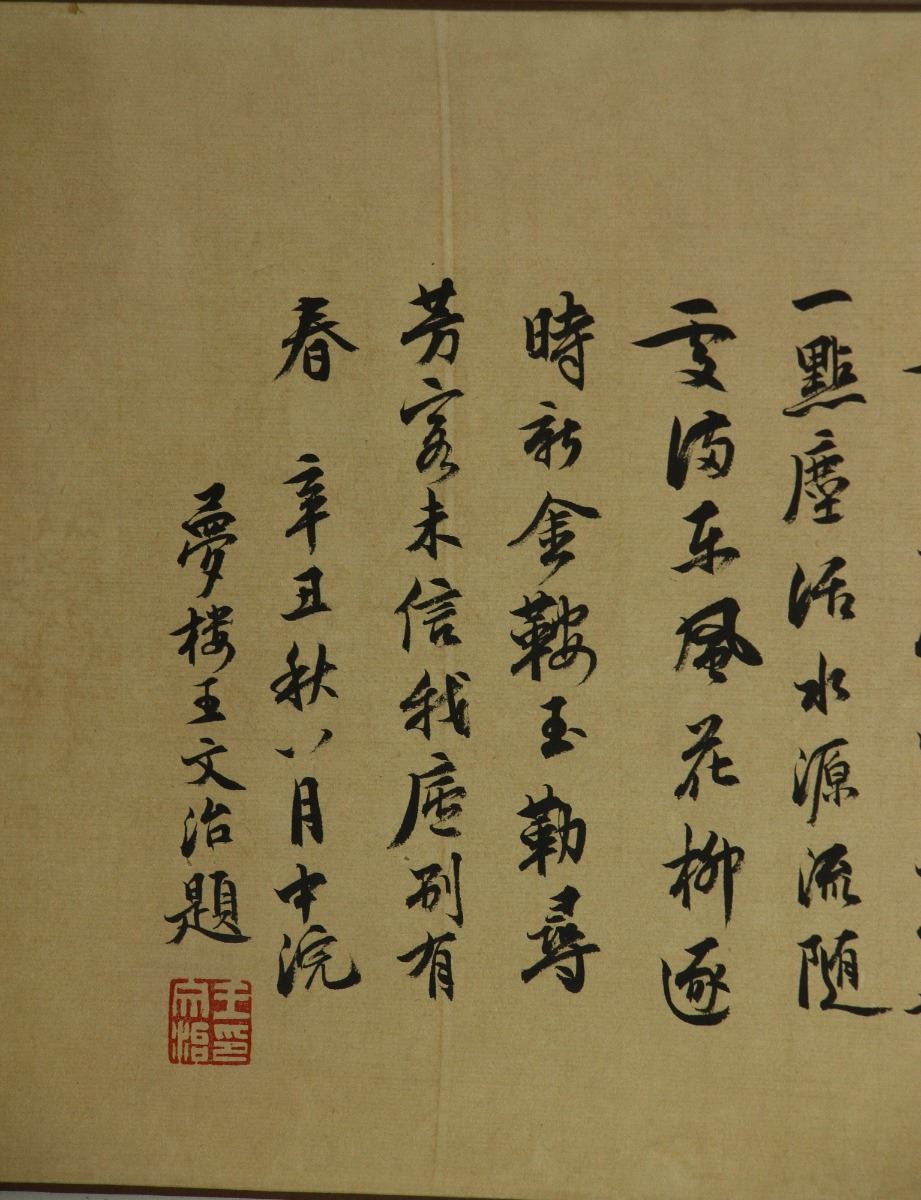 一點塵活水源流随
處满东風花柳逐
時新金鞍玉勒尋
芳客未信我廬别有
春 辛丑秋八月中浣
夢樓王文治題
王文治印